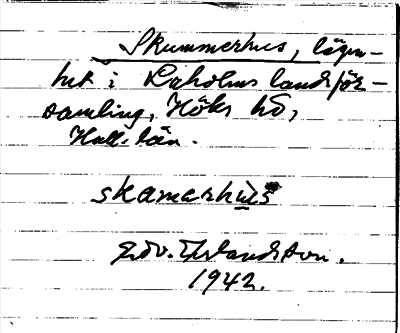 Skummerhus, lägen-
het i Laholms landsför-
samling, Höks hd,
Hall. län.
skamarhus
Edv. Erlandsson.
1942.